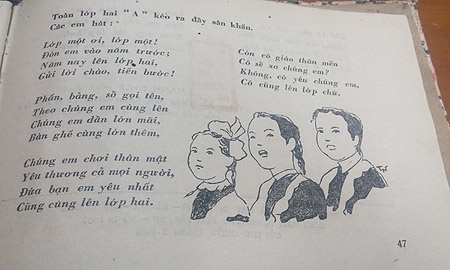 Toàn lớp hai "A" kéo ra đầy sân khấu.
Các em hát:
Lớp một ơi, lớp một!
Đón em vào năm trước;
Năm nay lên lớp hai,
Gửi lời chào, tiến bước!
Phấn, bảng, sổ gọi tên,
Theo chúng em cùng lên
Chúng em dần lớn mãi,
Bàn ghế cùng lớn thêm,
Chúng em chơi thân mật
Yêu thương cả mọi người,
Đứa bạn em yêu nhất
Cũng cùng lên lớp hai.
Còn cô giáo thân mến
Cô sẽ xa chúng em?
Không, cô yêu chúng em,
Cô cùng lên lớp chứ.
47